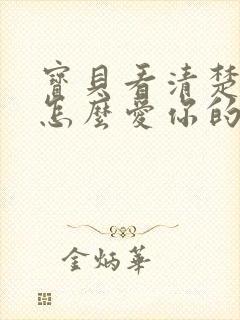 寶貝看清楚
怎麼愛你的
金炳華